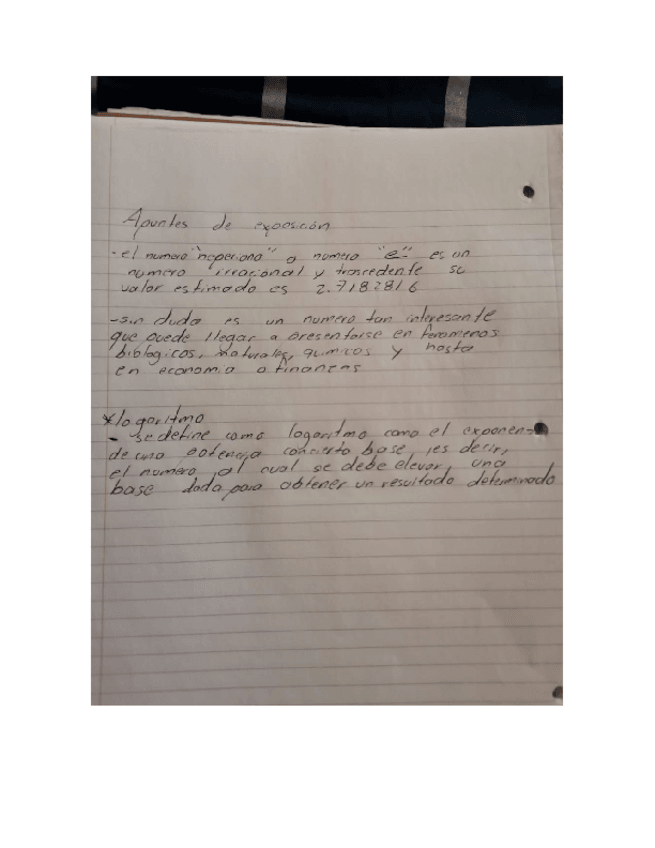 Apuntes de exposición
- el numero "neperiano" o numero "e" es un
numero irracional y trascedente su
valor estimado es 2.7182816
- sin duda es un numero tan interesante
que puede llegar a presentarse en fenomenos
biologicos, naturales, quimicos y hasta
en economia o finanzas
*logaritmo
- se define como logaritmo como el exponente
de una potencia con cierto base, es decir,
el numero al cual se debe elevar una
base dada para obtener un resultado determinado